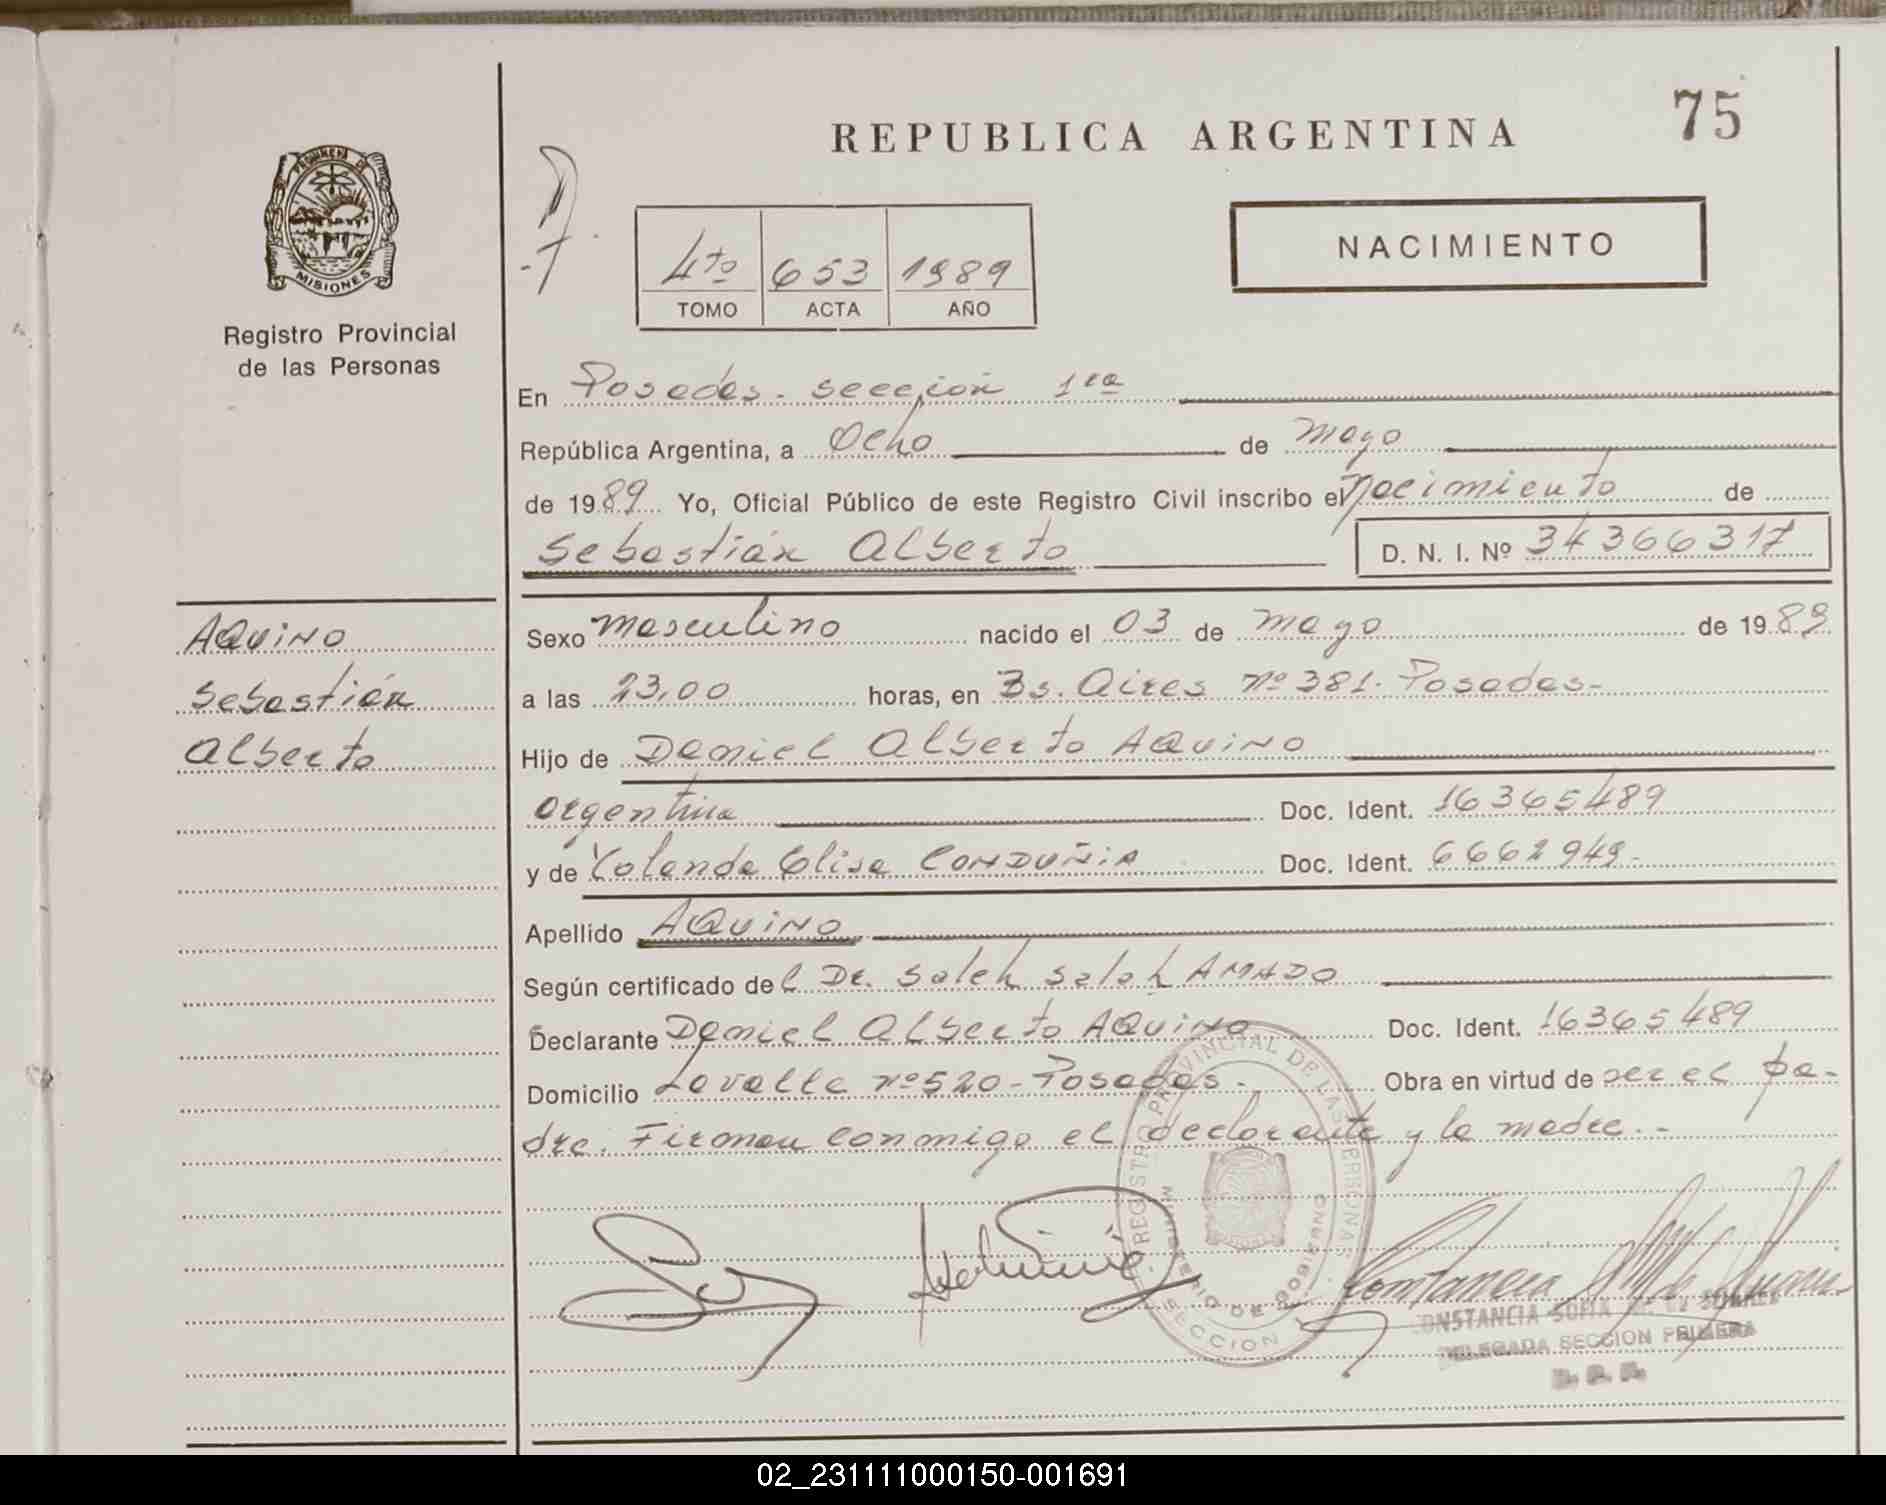 75
REPUBLICA ARGENTINA
PROVINCIA DE
MISIONES
Registro Provincial
de las Personas
4to 653 1989
TOMO ACTA AÑO
NACIMIENTO
En Posadas. sección 1ra
República Argentina, a Ocho de mayo
de 1989 Yo, Oficial Público de este Registro Civil inscribo el nacimiento de
Sebastián Alberto D. N. I. Nº 34366317
AQUINO
Sebastián
Alberto
Sexo masculino nacido el 03 de mayo de 1989
a las 23,00 horas, en Bs. Aires nº 381. Posadas-
Hijo de Daniel Alberto AQUINO
argentina Doc. Ident. 16365489
y de Yolanda Elisa CONDUÑIA Doc. Ident. 6662949-
Apellido AQUINO
Según certificado del Dr. Saleh Salah AMADO
Declarante Daniel Alberto AQUINO Doc. Ident. 16365489
Domicilio Lavalle nº 520-Posadas. Obra en virtud de ser el pa-
dre. Firman conmigo el declarante y la madre.-
REGISTRO PROVINCIAL DE LAS PERSONAS
MINISTERIO DE GOBIERNO
SECCION 1
CONSTANCIA SOFIA
DELEGADA SECCION PRIMERA
02_231111000150-001691